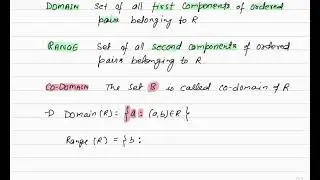 DOMAIN Set of all first components of ordered
pairs belonging to R
RANGE Set of all second components of ordered
pairs belonging to R
CO-DOMAIN The set B is called co-domain of R
→ Domain (R) = {a : (a,b) ∈ R}
Range (R) = {b :